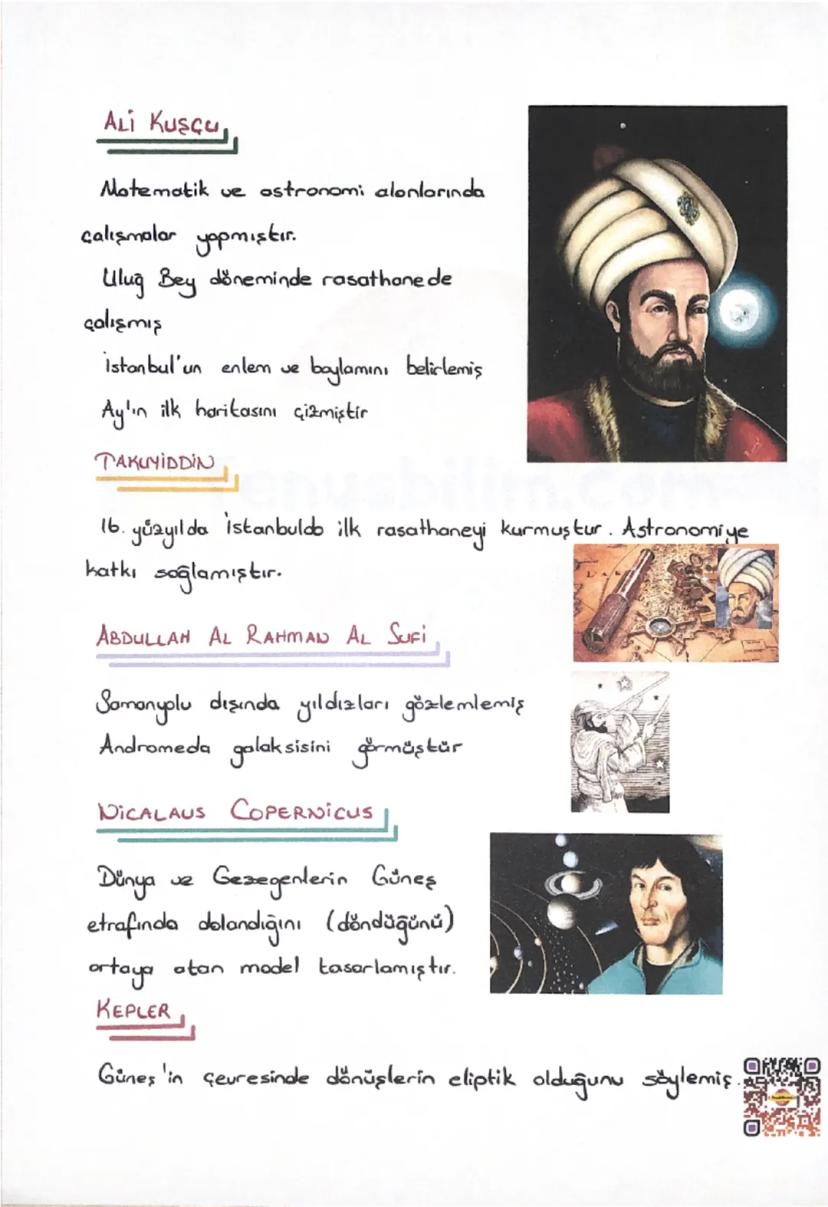 ALİ KUŞÇU
Matematik ve astronomi alanlarında
çalışmalar yapmıştır.
Uluğ Bey döneminde rasathanede
çalışmış
İstanbul'un enlem ve boylamını belirlemiş
Ay'ın ilk haritasını çizmiştir
TAKUYİDDİN
16. yüzyılda İstanbulda ilk rasathaneyi kurmuştur. Astronomiye
katkı sağlamıştır.
ABDULLAH AL RAHMAN AL SUFİ
Samanyolu dışında yıldızları gözlemlemiş
Andromeda galaksisini görmüştür
NİCALAUS COPERNİCUS
Dünya ve Gezegenlerin Güneş
etrafında dolandığını (döndüğünü)
ortaya atan model tasarlamıştır.
KEPLER
Güneş'in çevresinde dönüşlerin eliptik olduğunu söylemiş.